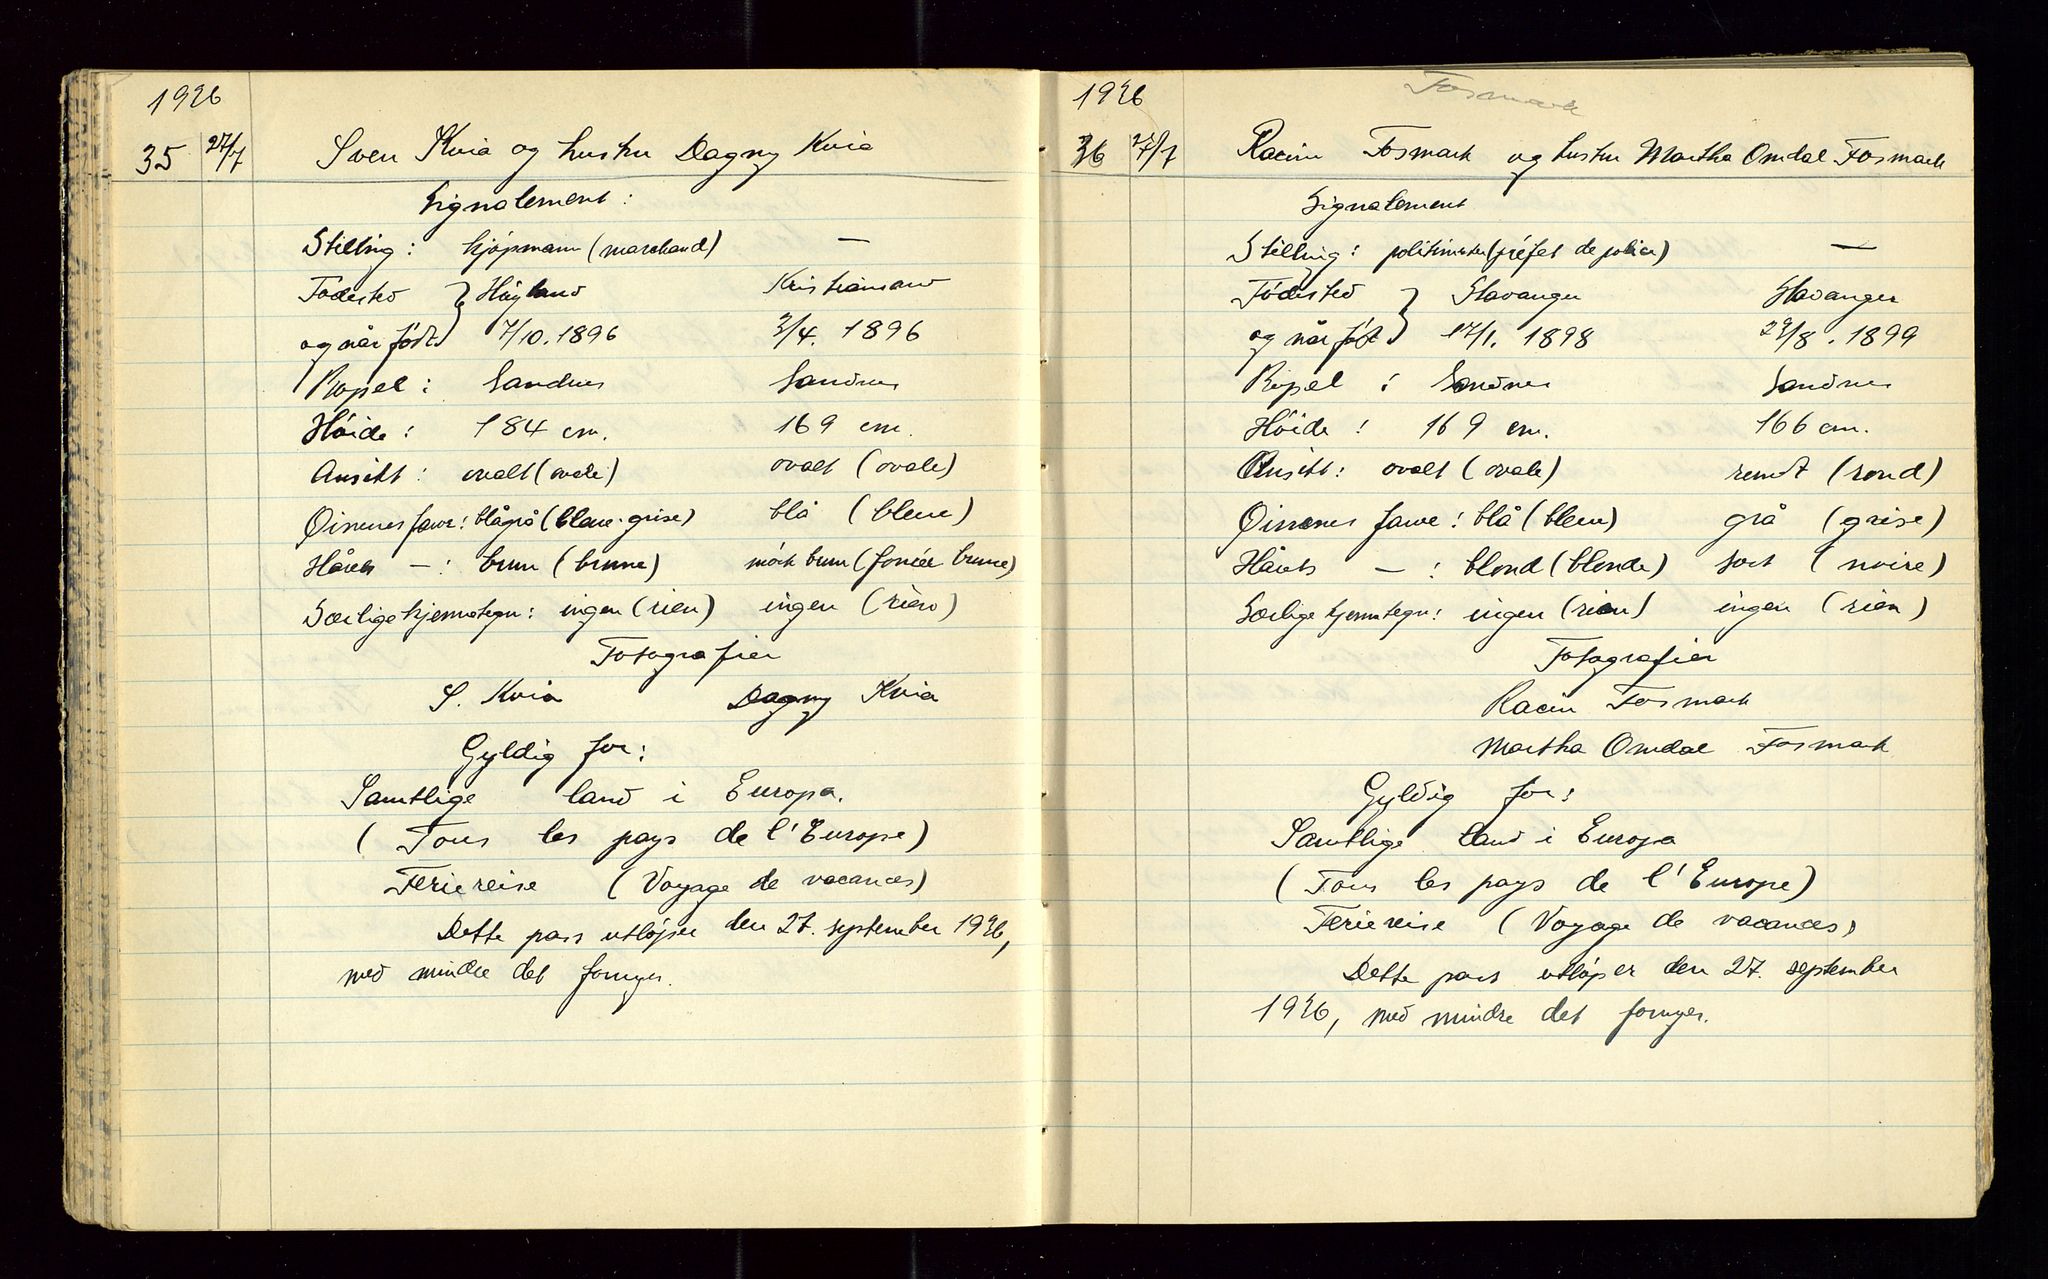 1936
35 27/7 Sven Kvia og hustru Dagny Kvia
Signalement:
Stilling: kjøpmann (marchand) —
Fødested } Høyland Kristiansand
og når født } 7/10. 1896 3/4. 1896
Bopel: Sandnes Sandnes
Høide: 184 cm. 169 cm.
Ansikt: ovalt (ovale) ovalt (ovale)
Øinenes farve: blågrå (bleue-grise) blå (bleue)
Hårets —: brun (brune) mörk brun (foncée brune)
Særlige kjennetegn: ingen (rien) ingen (rien)
Fotografier
S. Kvia Dagny Kvia
Gyldig for:
Samtlige land i Europa.
(Tous les pays de l'Europe)
Feriereise (Voyage de vacances)
Dette pass utløper den 27. september 1936,
med mindre det fornyes.
1936 Fosmark
36 27/7 Racin Fosmark og hustru Martha Omdal Fosmark
Signalement
Stilling: politimester (préfet de police) —
Fødested } Stavanger Stavanger
og når født } 17/1. 1898 29/8. 1899
Bopel: Sandnes Sandnes
Høide: 169 cm. 166 cm.
Ansikt: ovalt (ovale) rundt (rond)
Øinenes farve: blå (bleue) grå (grise)
Hårets —: blond (blonde) sort (noire)
Særlige kjennetegn: ingen (rien) ingen (rien)
Fotografier
Racin Fosmark
Martha Omdal Fosmark
Gyldig for:
Samtlige land i Europa
(Tous les pays de l'Europe)
Feriereise (Voyage de vacances)
Dette pass utløper den 27. september
1936, med mindre det fornyes.